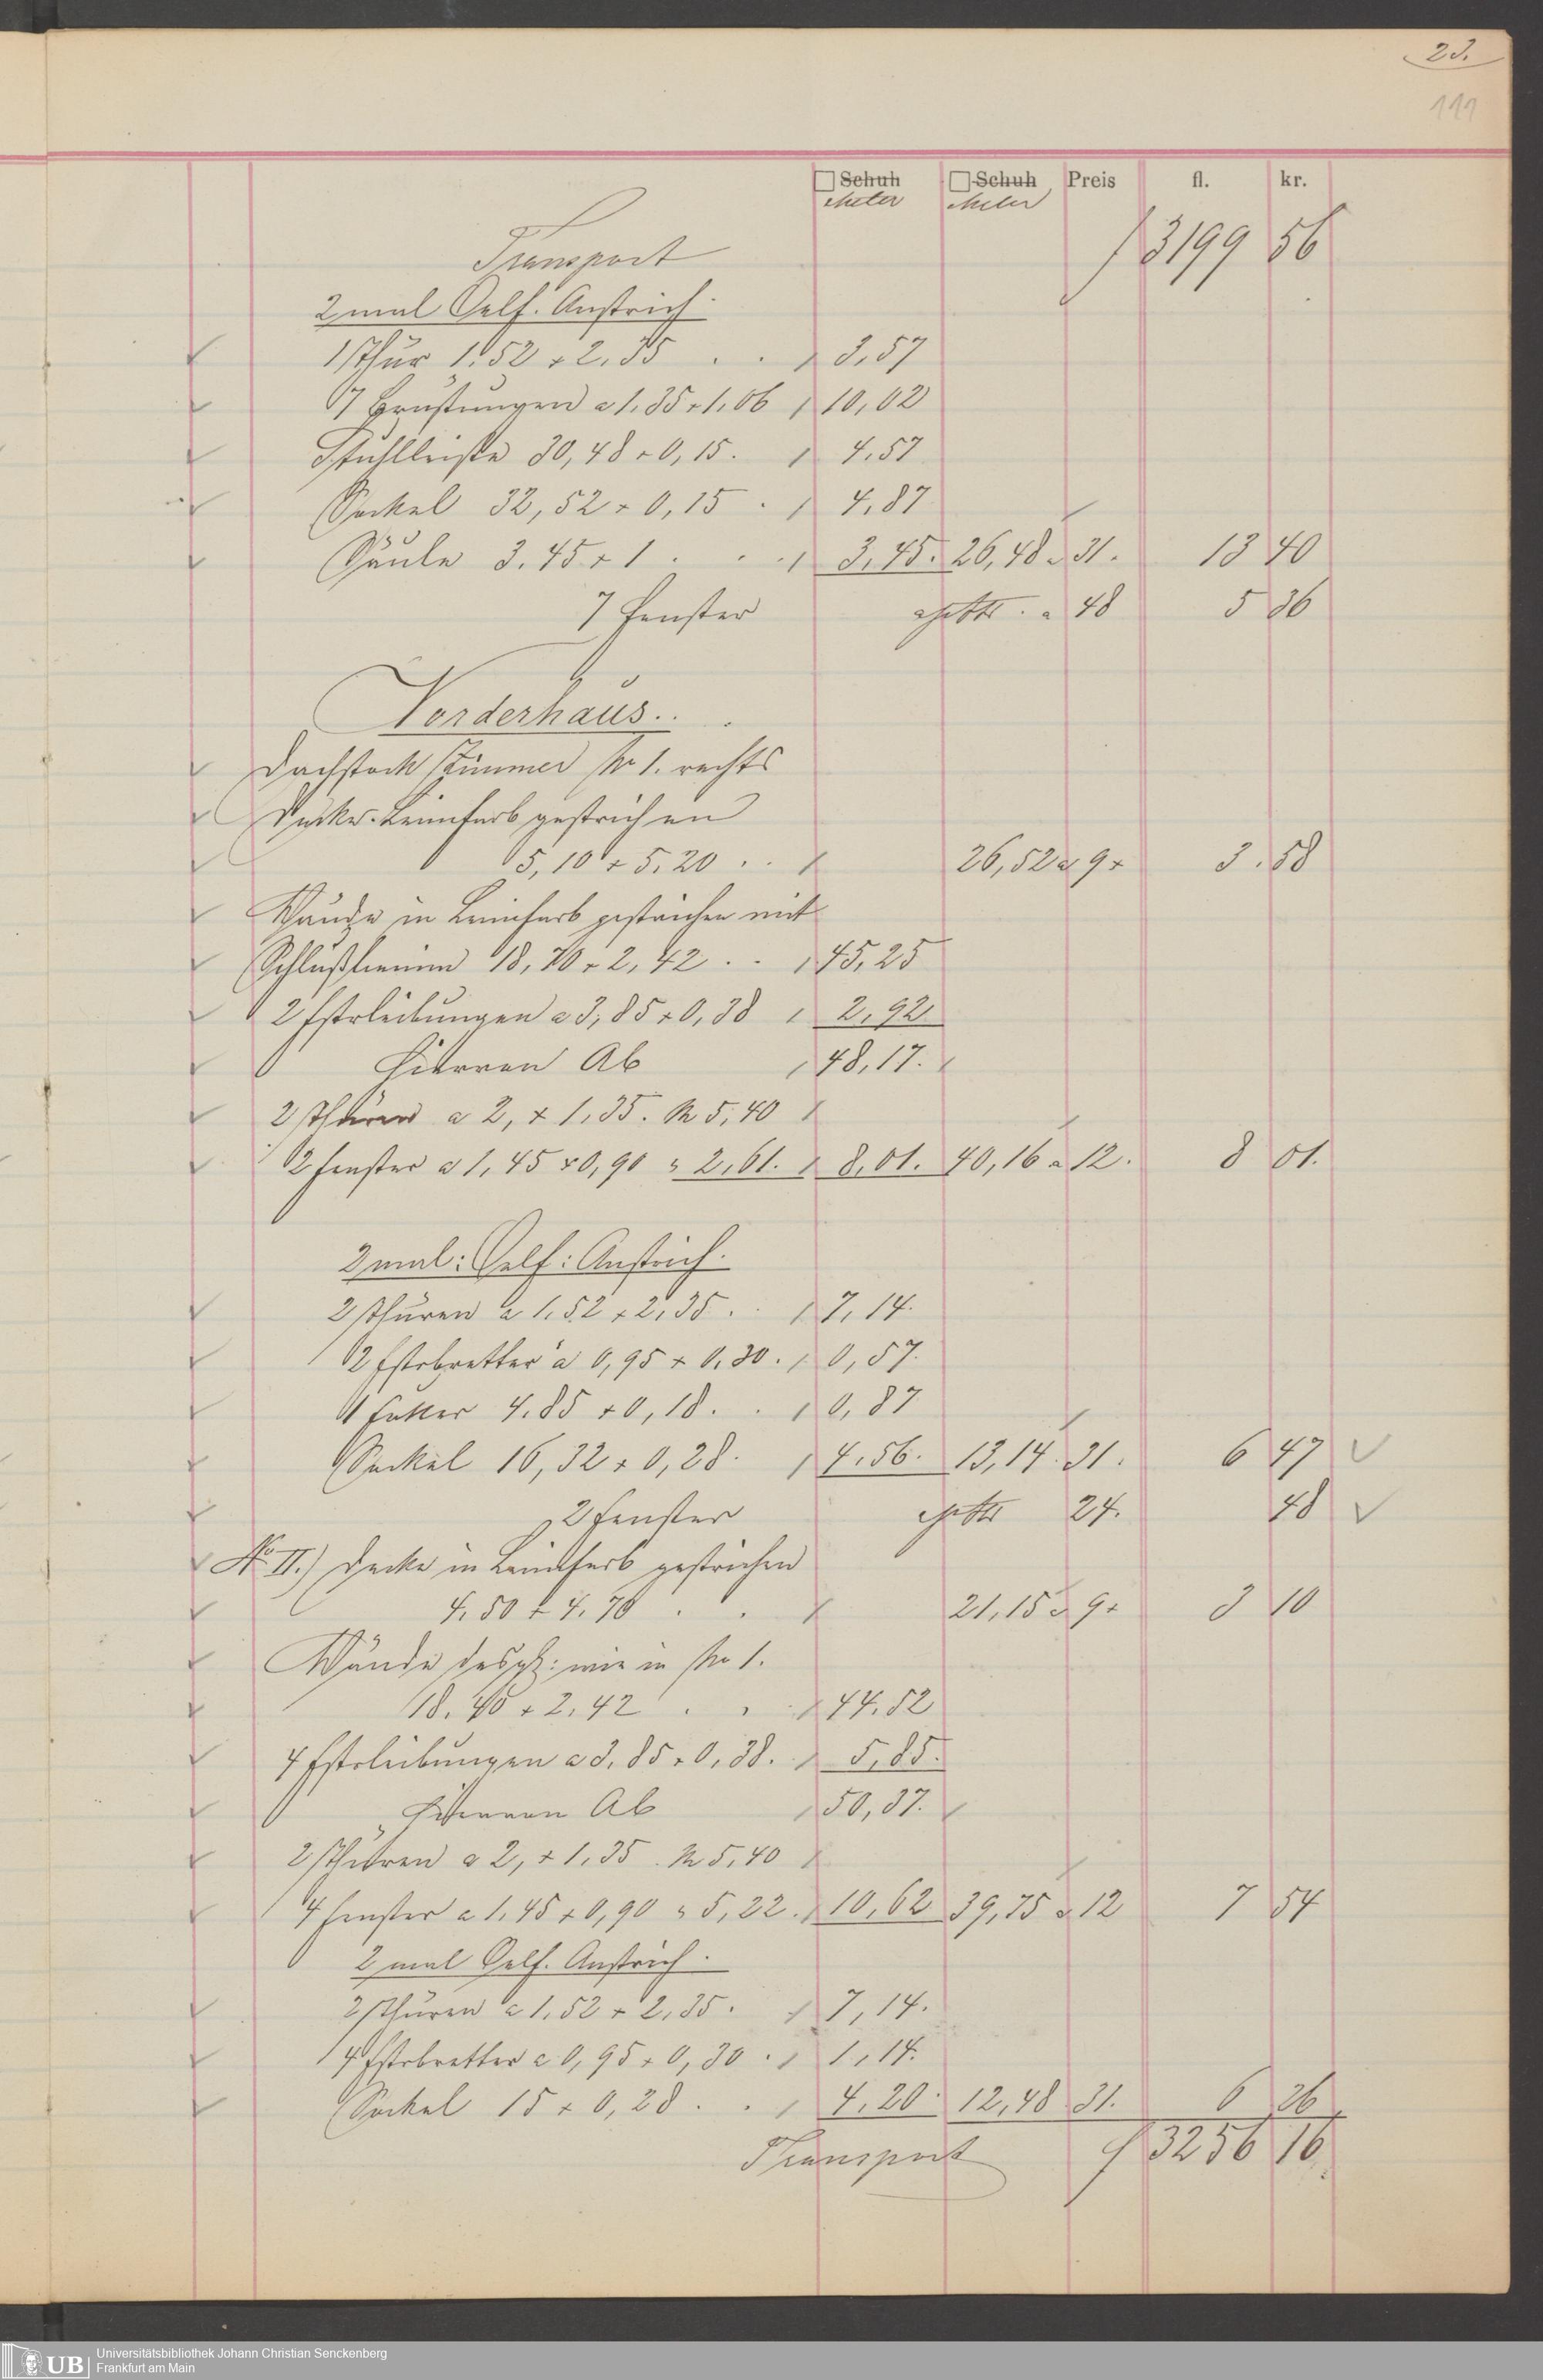 23.
111
□ Schuh □ Schuh Preis fl. kr.
Meter Meter
Transport f 3199 56
2 mal Oelf. Anstrich.
1 Thür 1.52 + 2.35 . . 3,57
7 Brüstungen a 1.35 + 1.06 10,02
Stuhlleiste 30,48 + 0,15. 4.57
Sockel 32,52 + 0,15 . 4,87
Säule 3.45 + 1 . . . 3,45. 26,48 a 31. 13 40
7 Fenster a 48 5 36
Vorderhaus..
Dachstock Zimmer No 1. rechts
Decke Leimfarb gestrichen
5,10 + 5,20 . . 26,52 a 9 + 3. 58
Wände in Leimfarb gestrichen mit
18,70 + 2,42 . . 45,25
2 Fstrleibungen a 3,85 + 0,38 2,92
Hiervon Ab 48,17.
2 Thüren a 2, + 1,35. M 5,40
2 Fenster a 1,45 + 0,90 " 2,61. 8,01. 40,16 a 12. 8 01.
2 mal: Oelf: Anstrich.
2 Thüren a 1,52 + 2,35 . . 7,14.
2 Fstrbretter a 0,95 + 0,30. 0,57.
1 Futter 4.85 + 0,18. . 0,87
Sockel 16,32 + 0,28. 4,56. 13,14. 31. 6 47
2 Fenster 24. 48
No II.) Decke in Leimfarb gestrichen
4.50 + 4.70 . . 21,15 a 9 + 3 10
Wände desgl: wie in No 1.
18.40 + 2.42 . . 44.52
4 Fstrleibungen a 3.85 + 0,38. 5,85.
Hiervon Ab 50,37.
2 Thüren a 2, + 1,35. M 5,40
4 Fenster a 1,45 + 0,90 " 5,22. 10,62 39,75 a 12 7 54
2 mal Oelf. Anstrich.
2 Thüren a 1,52 + 2,35. 7,14.
4 Fstrbretter a 0,95 + 0,30 . 1,14.
Sockel 15 + 0,28 . . 4,20. 12,48 31. 6 26
Transport f 3256 16
UB Universitätsbibliothek Johann Christian Senckenberg
Frankfurt am Main